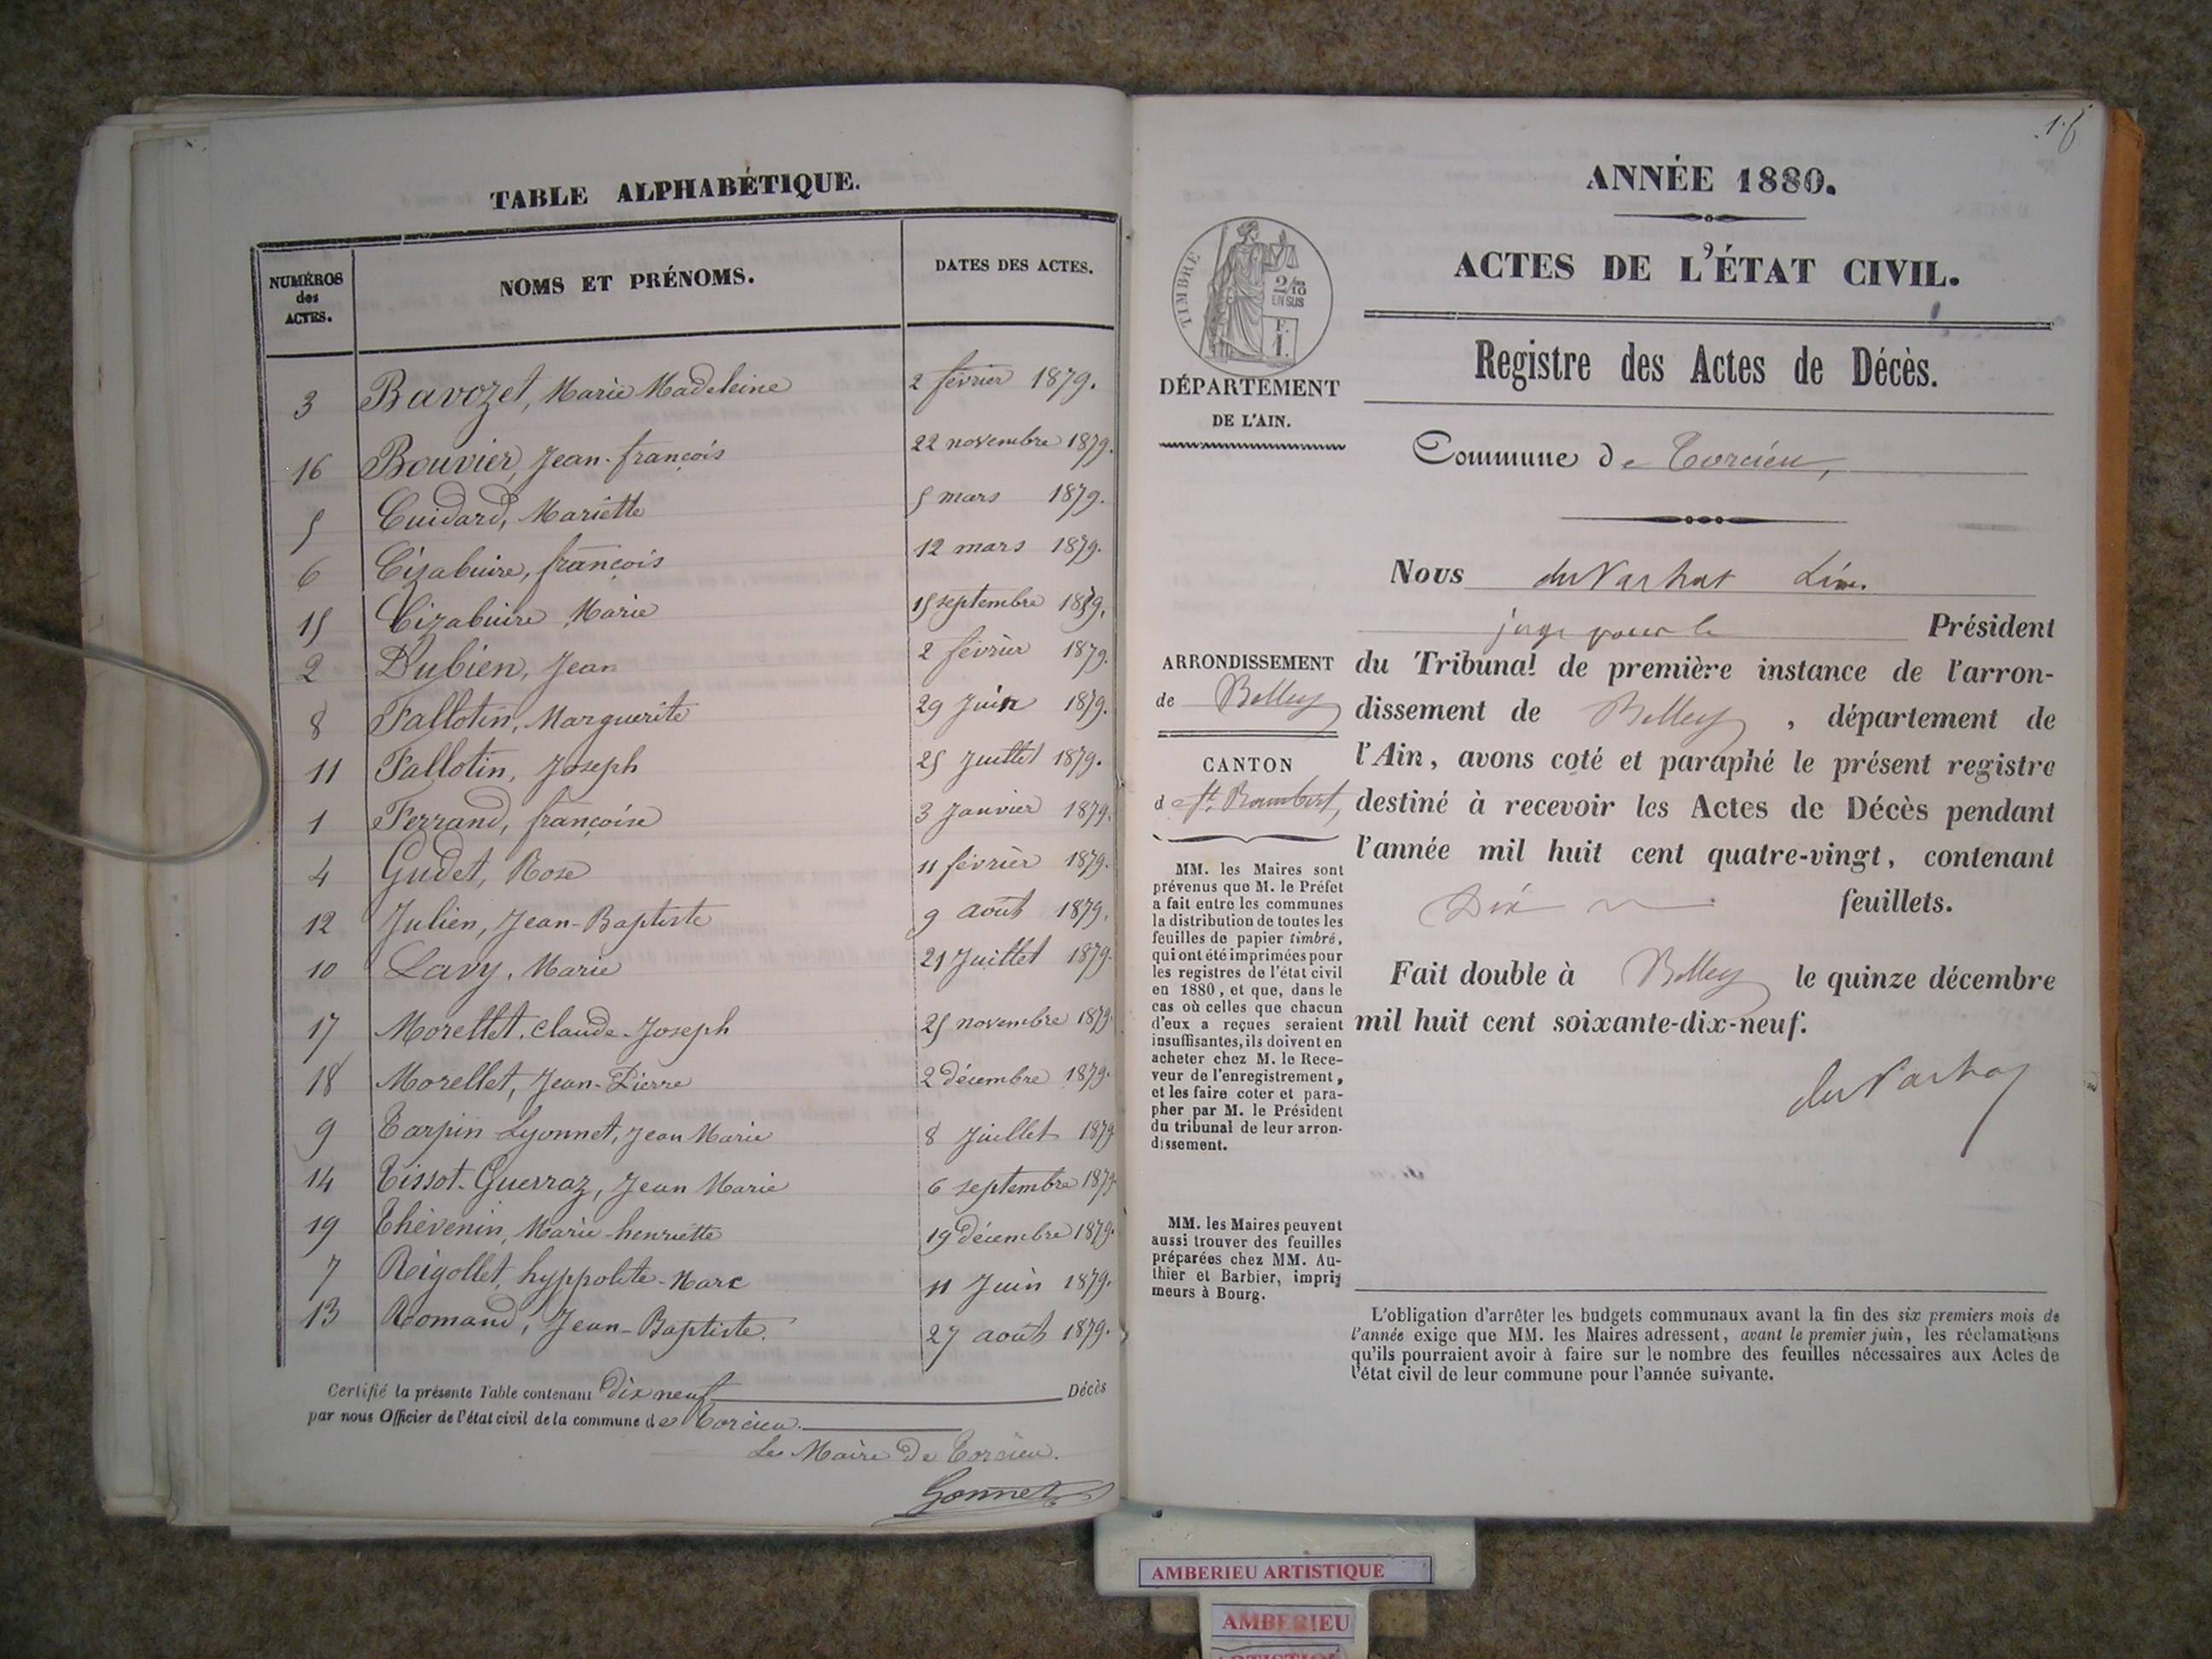 TABLE ALPHABÉTIQUE.
NUMÉROS des ACTES.
NOMS ET PRÉNOMS.
DATES DES ACTES.
3 Bavozet, Marie Madeleine 2 février 1879.
16 Bouvier, Jean-françois 22 novembre 1879.
5 Cuidard, Mariette 5 mars 1879.
6 Cizabuire, françois 12 mars 1879.
15 Cizabuire Marie 15 septembre 1879.
2 Dubien, Jean 2 février 1879.
8 Fallotin, Marguerite 29 Juin 1879.
11 Fallotin, Joseph 25 Juillet 1879.
1 Ferrand, françoise 3 Janvier 1879.
4 Gudet, Rose 11 février 1879.
12 Julien, Jean-Baptiste 9 août 1879.
10 Lavy, Marie 21 Juillet 1879.
17 Morellet, Claude-Joseph 25 novembre 1879.
18 Morellet, Jean-Pierre 2 décembre 1879.
9 Tarpin Lyonnet, Jean Marie 8 Juillet 1879
14 Tissot-Guerraz, Jean Marie 6 septembre 1879.
19 Thévenin, Marie-henriette 19 décembre 1879.
7 Rigollet, hyppolite-Marc 11 Juin 1879.
13 Romand, Jean-Baptiste. 27 août 1879.
Certifié la présente Table contenant dix neuf Décès
par nous Officier de l'état civil de la commune de Torcieu.
Le Maire de Torcieu.
Gonnet
ANNÉE 1880.
ACTES DE L'ÉTAT CIVIL.
TIMBRE
2/10
EN SUS
F.
1.
DÉPARTEMENT
DE L'AIN.
Registre des Actes de Décès.
Commune de Torcieu,
Nous
juge pour le Président
du Tribunal de première instance de l'arron-
dissement de Belley, département de
l'Ain, avons coté et paraphé le présent registre
destiné à recevoir les Actes de Décès pendant
l'année mil huit cent quatre-vingt, contenant
Dix feuillets.
Fait double à Belley le quinze décembre
mil huit cent soixante-dix-neuf.
ARRONDISSEMENT
de Belley
CANTON
de St Rambert,
MM. les Maires sont
prévenus que M. le Préfet
a fait entre les communes
la distribution de toutes les
feuilles de papier timbré,
qui ont été imprimées pour
les registres de l'état civil
en 1880, et que, dans le
cas où celles que chacun
d'eux a reçues seraient
insuffisantes, ils doivent en
acheter chez M. le Rece-
veur de l'enregistrement,
et les faire coter et para-
pher par M. le Président
du tribunal de leur arron-
dissement.
MM. les Maires peuvent
aussi trouver des feuilles
préparées chez MM. Au-
thier et Barbier, impri-
meurs à Bourg.
L'obligation d'arrêter les budgets communaux avant la fin des six premiers mois de
l'année exige que MM. les Maires adressent, avant le premier juin, les réclamations
qu'ils pourraient avoir à faire sur le nombre des feuilles nécessaires aux Actes de
l'état civil de leur commune pour l'année suivante.
AMBERIEU ARTISTIQUE
AMBERIEU
ARTISTIQUE